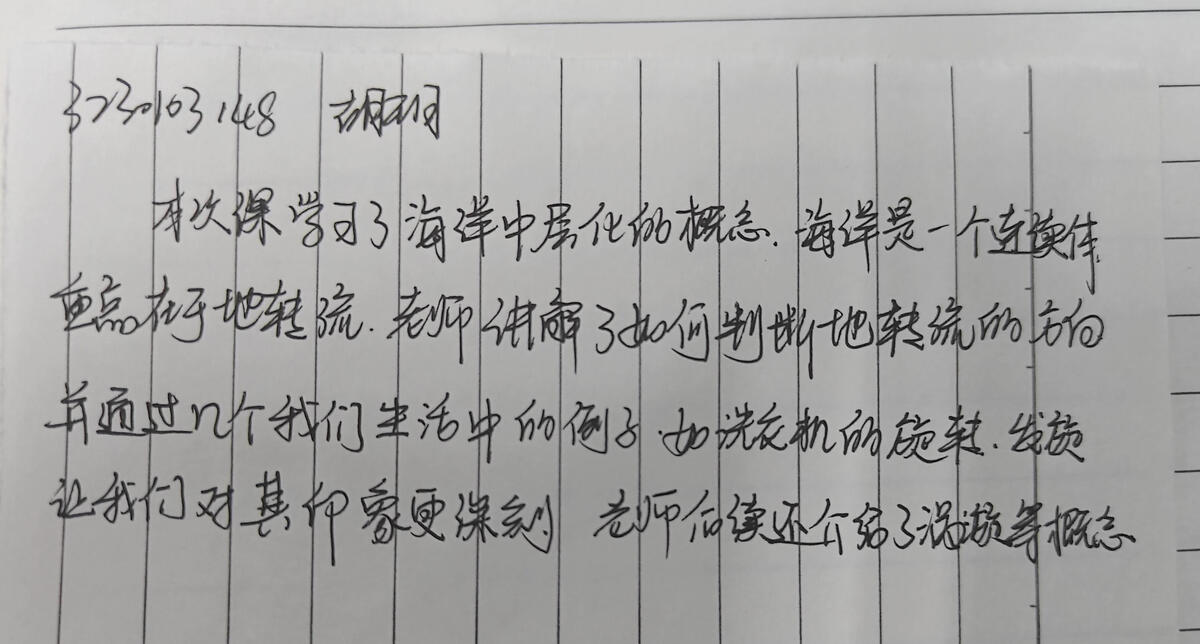 3230103148 胡栩
本次课学习了海洋中层化的概念.海洋是一个连续体
重点在于地转流.老师讲解了如何判断地转流的方向
并通过几个我们生活中的例子.如洗衣机的旋转.发旋
让我们对其印象更深刻 老师后续还介绍了涡旋等概念